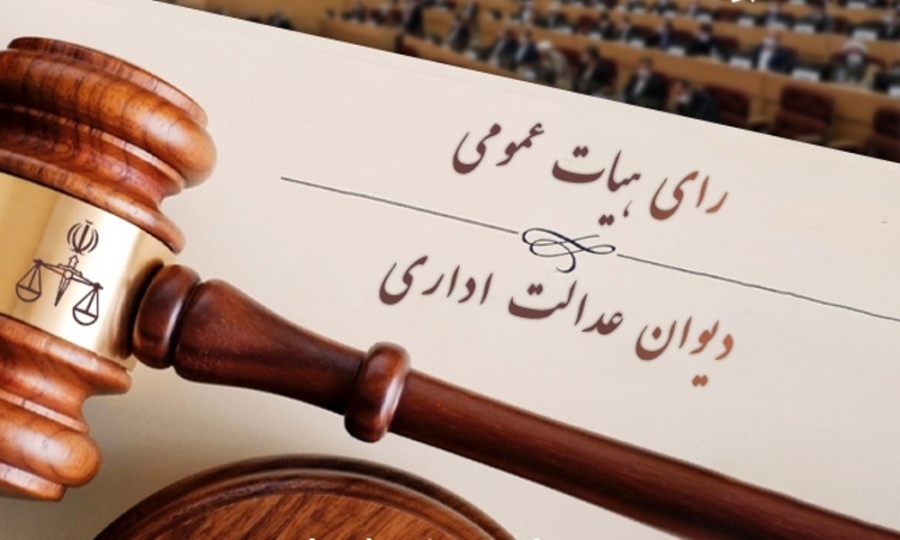 رای هیات عمومی
دیوان عدالت اداری